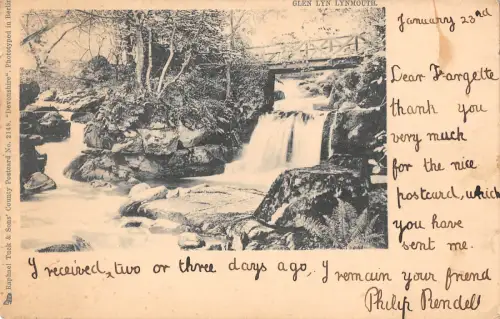 GLEN LYN LYNMOUTH.
Raphael Tuck & Sons' County Postcard No. 2148. "Devonshire". Phototyped in Berlin
January 23rd
Dear Fargette
thank you
very much
for the nice
postcard, which
you have
sent me.
I received, two or three days ago, I remain your friend
Philip Rendell